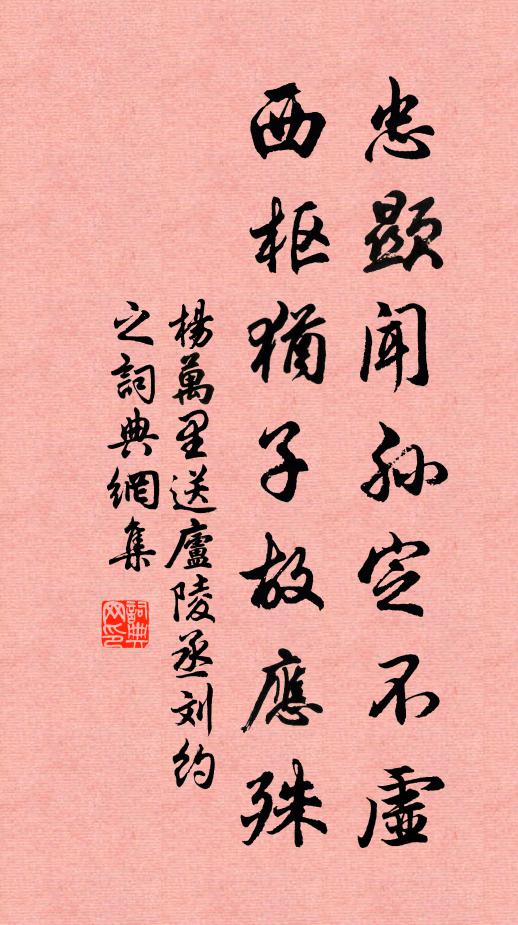 忠顯聞孙定不虛
西枢猶子故應殊
楊萬里送廬陵丞刘约
之詞典網集
詞典
网印